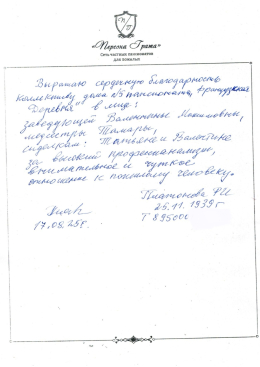 «Персона Грата»
Сеть частных пансионатов
для пожилых
Выражаю сердечную благодарность
коллективу дома №5 пансионата, французская
Деревня" в лице:
заведующей Валентины
медсестры Тамары,
сиделкам: Татьяне и Валентине
за высокий профессионализм,
внимательное и чуткое
отношение к пожилому человеку.
Платонова Р.И.
25.11.1939г
17.08.25г.